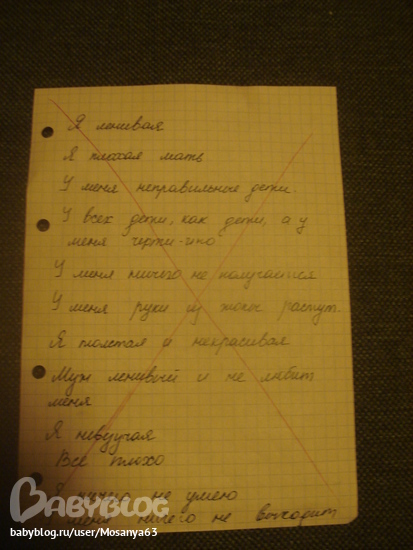 Я ленивая
Я плохая мать
У меня неправильные дети.
У всех дети, как дети, а у
меня черти-что
У меня ничего не получается
У меня руки из жопы растут.
Я толстая и некрасивая
Муж ленивый и не любит
меня
Я невезучая
Все плохо
Я ничего не умею
У меня ничего не выходит
BABYBLOG
babyblog.ru/user/Mosanya63